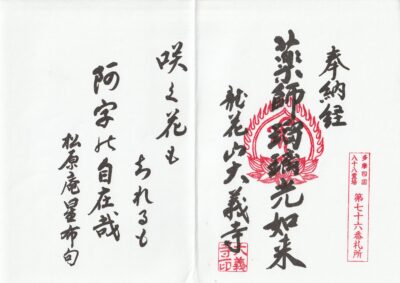 多摩四国
八十八霊場
第七十六番札所
奉納経
薬師瑠璃光如来
龍花山大義寺
大義寺印
咲く花も
ちれるも
阿字の自在哉
松原庵星布句